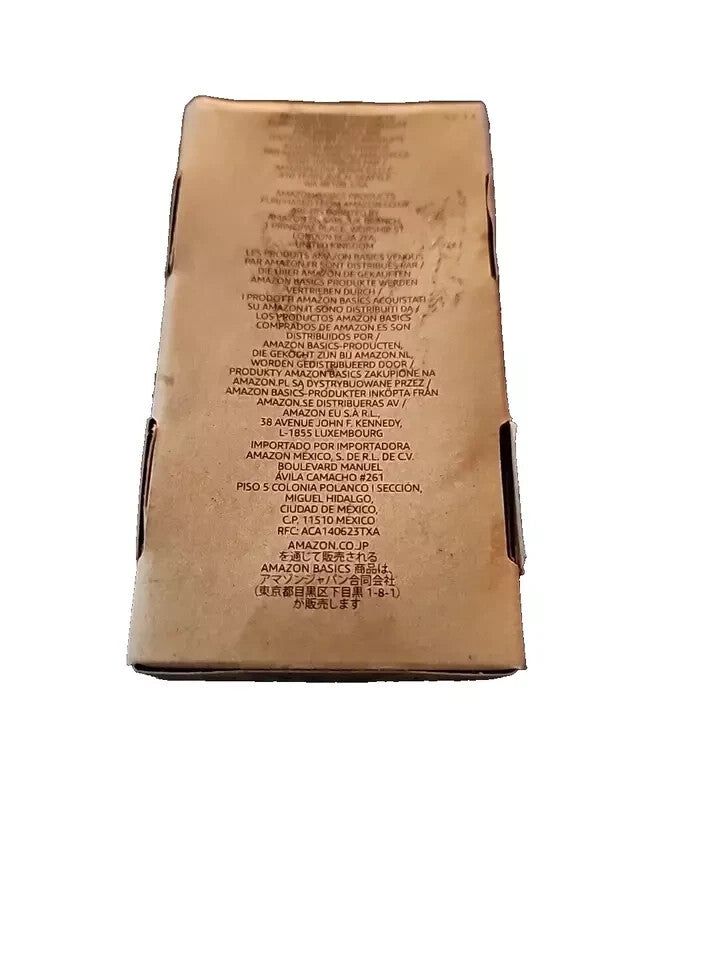 WA 98109, USA
AMAZON BASICS PRODUCTS
PURCHASED FROM AMAZON.CO.UK
PRINCIPAL PLACE, WORSHIP ST
LONDON EC2A 2FA,
UNITED KINGDOM
LES PRODUITS AMAZON BASICS VENDUS
PAR AMAZON.FR SONT DISTRIBUÉS PAR /
DIE ÜBER AMAZON.DE GEKAUFTEN
AMAZON BASICS PRODUKTE WERDEN
VERTRIEBEN DURCH /
I PRODOTTI AMAZON BASICS ACQUISTATI
SU AMAZON.IT SONO DISTRIBUITI DA /
LOS PRODUCTOS AMAZON BASICS
COMPRADOS DE AMAZON.ES SON
DISTRIBUIDOS POR /
AMAZON BASICS-PRODUCTEN,
DIE GEKOCHT ZIJN BIJ AMAZON.NL,
WORDEN GEDISTRIBUEERD DOOR /
PRODUKTY AMAZON BASICS ZAKUPIONE NA
AMAZON.PL SĄ DYSTRYBUOWANE PRZEZ /
AMAZON BASICS-PRODUKTER INKÖPTA FRÅN
AMAZON.SE DISTRIBUERAS AV /
AMAZON EU S.À R.L.,
38 AVENUE JOHN F. KENNEDY,
L-1855 LUXEMBOURG
IMPORTADO POR IMPORTADORA
AMAZON MÉXICO, S. DE R.L. DE C.V.
BOULEVARD MANUEL
ÁVILA CAMACHO #261
PISO 5 COLONIA POLANCO I SECCIÓN,
MIGUEL HIDALGO,
CIUDAD DE MÉXICO,
C.P. 11510 MÉXICO
RFC: ACA140623TXA
AMAZON.CO.JP
を通じて販売される
AMAZON BASICS 商品は、
アマゾンジャパン合同会社
（東京都目黒区下目黒 1-8-1）
が販売します